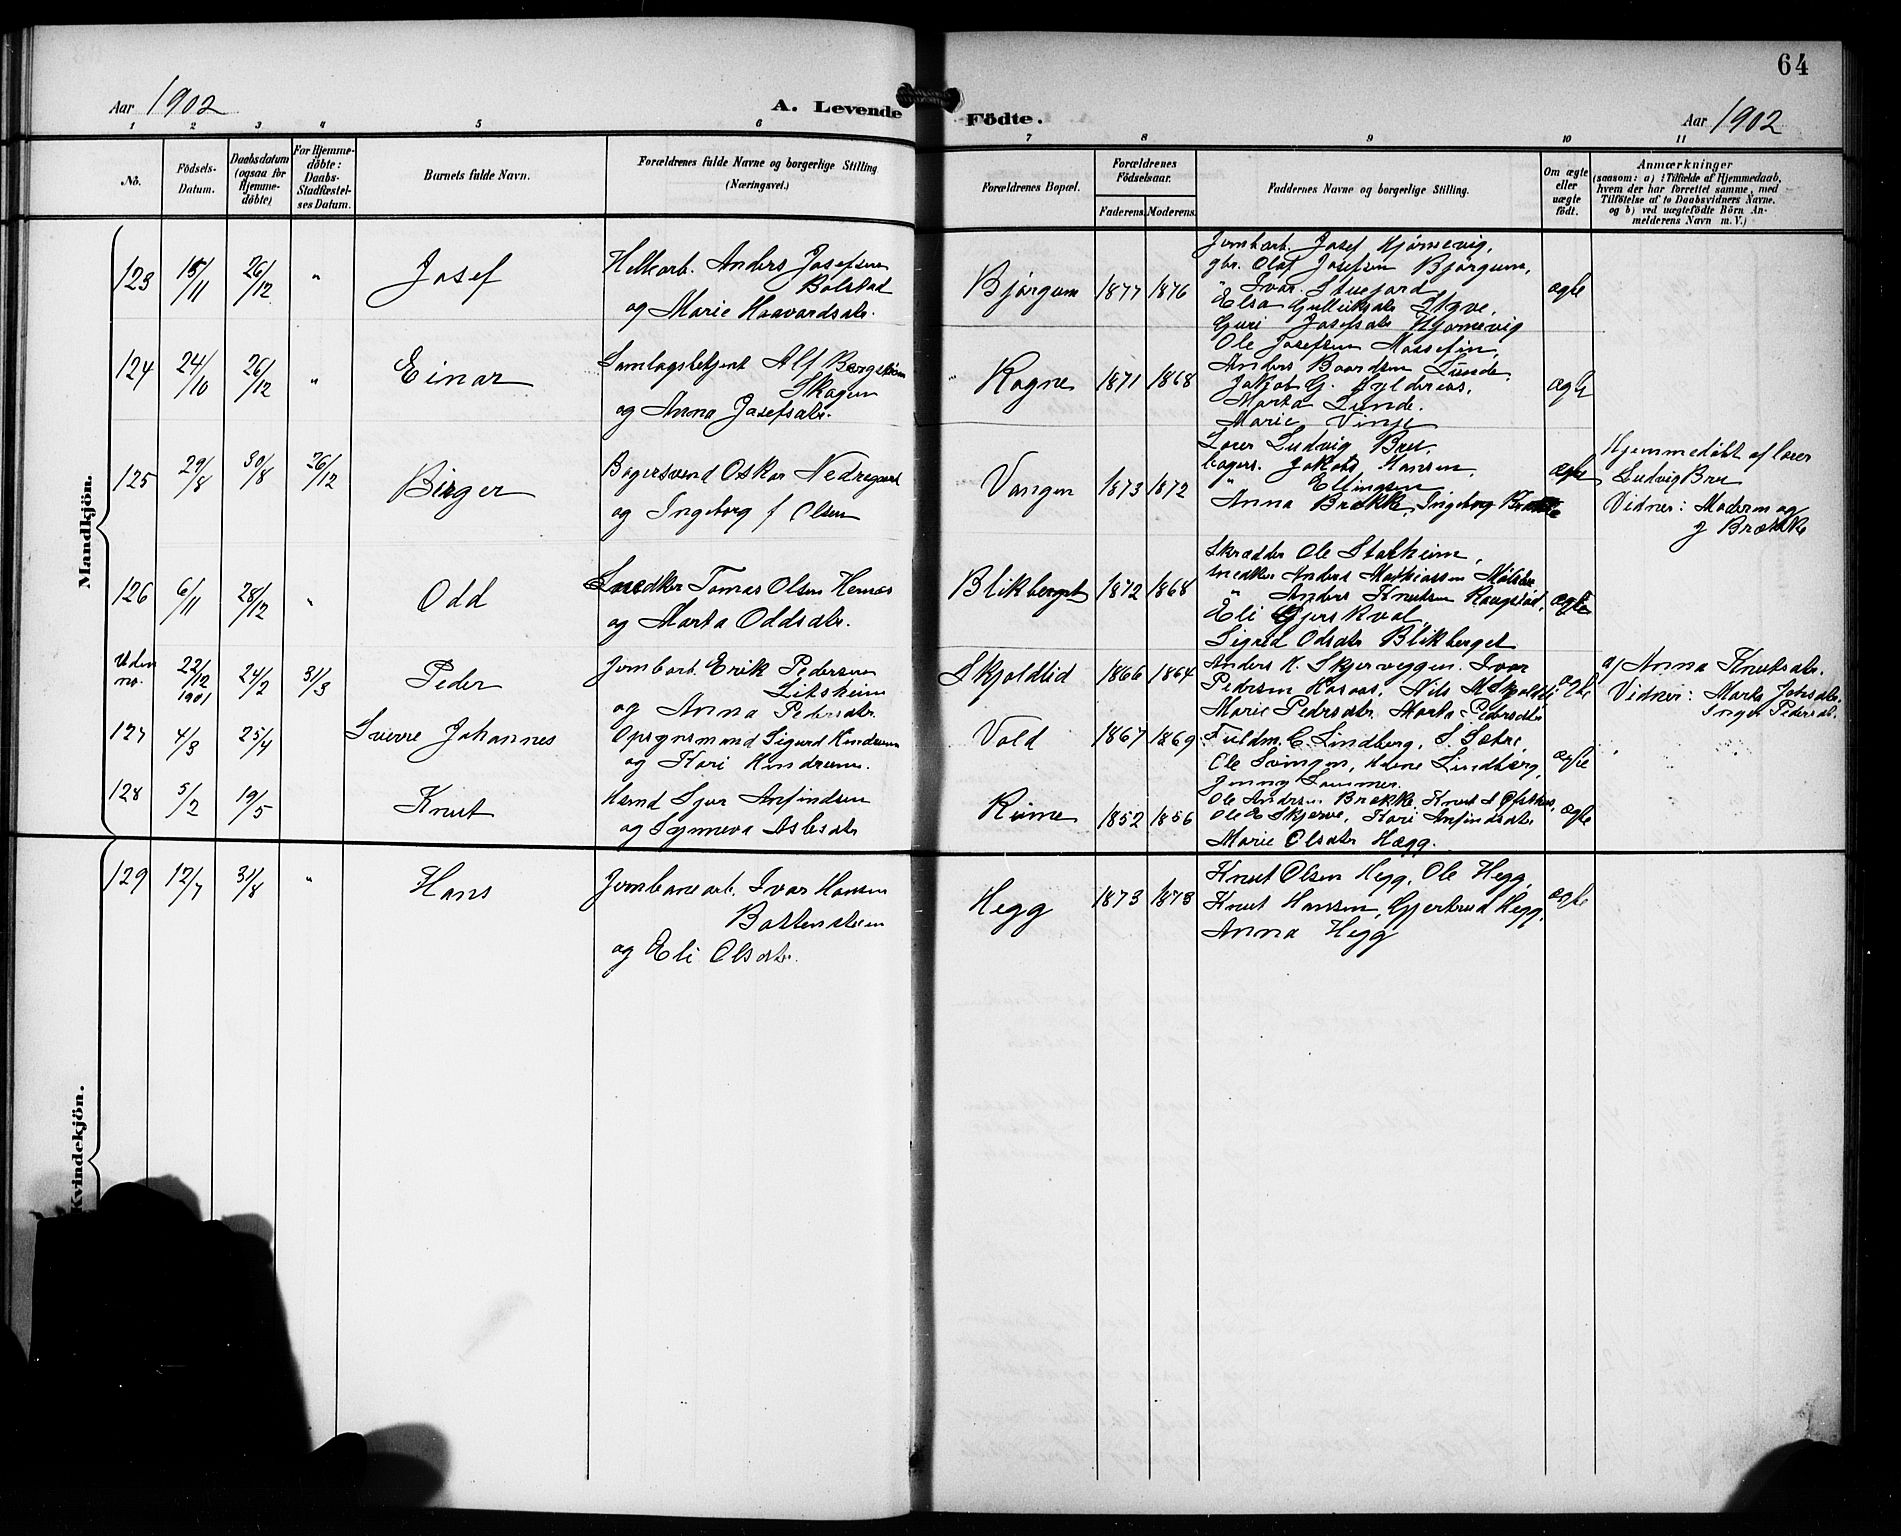 64
Aar 1902
A. Levende
Födte.
Aar 1902
1 2 3 4 5 6 7 8 9 10 11
No.
Födsels-
Datum.
Daabsdatum
(ogsaa for
Hjemme-
döbte)
For Hjemme-
döbte:
Daabs-
Stadfæstel-
ses Datum.
Barnets fulde Navn.
Forældrenes fulde Navne og borgerlige Stilling
(Næringsvei.)
Forældrenes Bopæl.
Forældrenes
Födselsaar.
Faderens. Moderens.
Faddernes Navne og borgerlige Stilling.
Om ægte
eller
uægte
födt.
Anmærkninger
(saasom: a) i Tilfælde af Hjemmedaab,
hvem der har forrettet samme, med
Tilföielse af to Daabsvidners Navne.
og b) ved uægtefödte Börn An-
melderens Navn m. V.)
Mandkjön.
123 15/11 26/12 " Josef
Anders Josefsen
Bolstad
og Marie Haavardsdtr.
Bjørgum 1877 1876
Jernbarb. Josef Kjørnevig,
gbr. Olaf Josefsen Bjørgum,
" Ivar
Elsa Gulleiksdtr
Guri Josefsdtr Kjørnevig
ægte
124 24/10 26/12 " Einar
Samlagsbetjent Alf Bergstrøm
Skogen
og Anna Josefsdtr.
Rogne 1871 1868
Ole Josefsen
Anders Baardsen Lunde,
Jakob G.
Marta Lunde.
Marie Vinje
ægte
125 29/8 30/8 26/12 Birger
Bagersvend Oskar
og Ingeborg f Olsen
Vangen 1873 1872
Lærer Ludvig Bru,
bagers. Jakob Hansen
" Ellingsen
Anna Brække, Ingeborg Brække
ægte
Hjemmedøbt af lærer
Ludvig Bru
Vidner: Moderen og
J Brække
126 6/11 28/12 " Odd
Snedker Tomas Olsen Hernes
og Marta Oddsdtr.
Blikberget 1872 1868
Skrædder Ole Stalheim,
snedker Anders Mathiassen
" Anders Knutsen Rougstad,
Eli Gjerskval
Sigrid Odsdtr Blikberget
ægte
Uden
no. 22/12 1901 24/2 31/3 Peder
Jernbarb. Erik Pedersen
Litsheim
og Anna Pedersdtr
Skjoldlid 1866 1864
Anders K. Skjerveggen. Ivar
Pedersen Nils
Marie Pedersdtr. Marta Pedersdtr
ægte
a) Anna Knutsdtr.
Vidner: Marta
Inger Pedersdt.
127 4/3 25/4 Sverre Johannes
Opsynsmand Sigurd
og Kari
Vold 1867 1869
Fuldm. C. Lindberg, S. Sætre,
Ole Svingen, Lindberg,
Jenny Sommer.
ægte
128 5/2 19/5 Knut
Hsmd Sjur Anfindsen
og Synneva Aslesdtr
Rime 1852 1856
Ole Andersen Brække, Knut
Ole Skjerve, Kari Anfindsdtr.
Marie Olsdtr Hægg.
ægte
Kvindekjön.
129 12/7 31/8 " Hans
Jernbanearb. Ivar Hansen
og Eli Olsdtr.
Hegg 1873 1873
Knut Olsen Hegg, Ole Hegg,
Knut Hansen, Gjertrud Hegg,
Anna Hegg
ægte